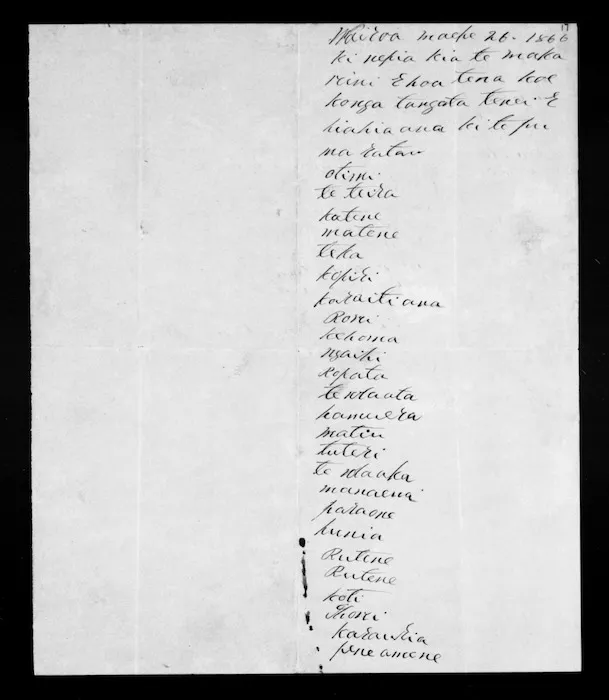 17
Wairoa maehe 26. 1866
ki nepia kia te maka
reini E hoa tena koe
konga tangata tenei E
hiahia ana ki te pu
ma ratau
otimi
te teira
katene
matene
teka
kopiri
karaitiana
Rorei
kehoma
ngaihi
Ropata
te
hamuera
matiu
tuteri
te
manaena
paraone
punia
Rutene
Rutene
koti
karauria
pene amene